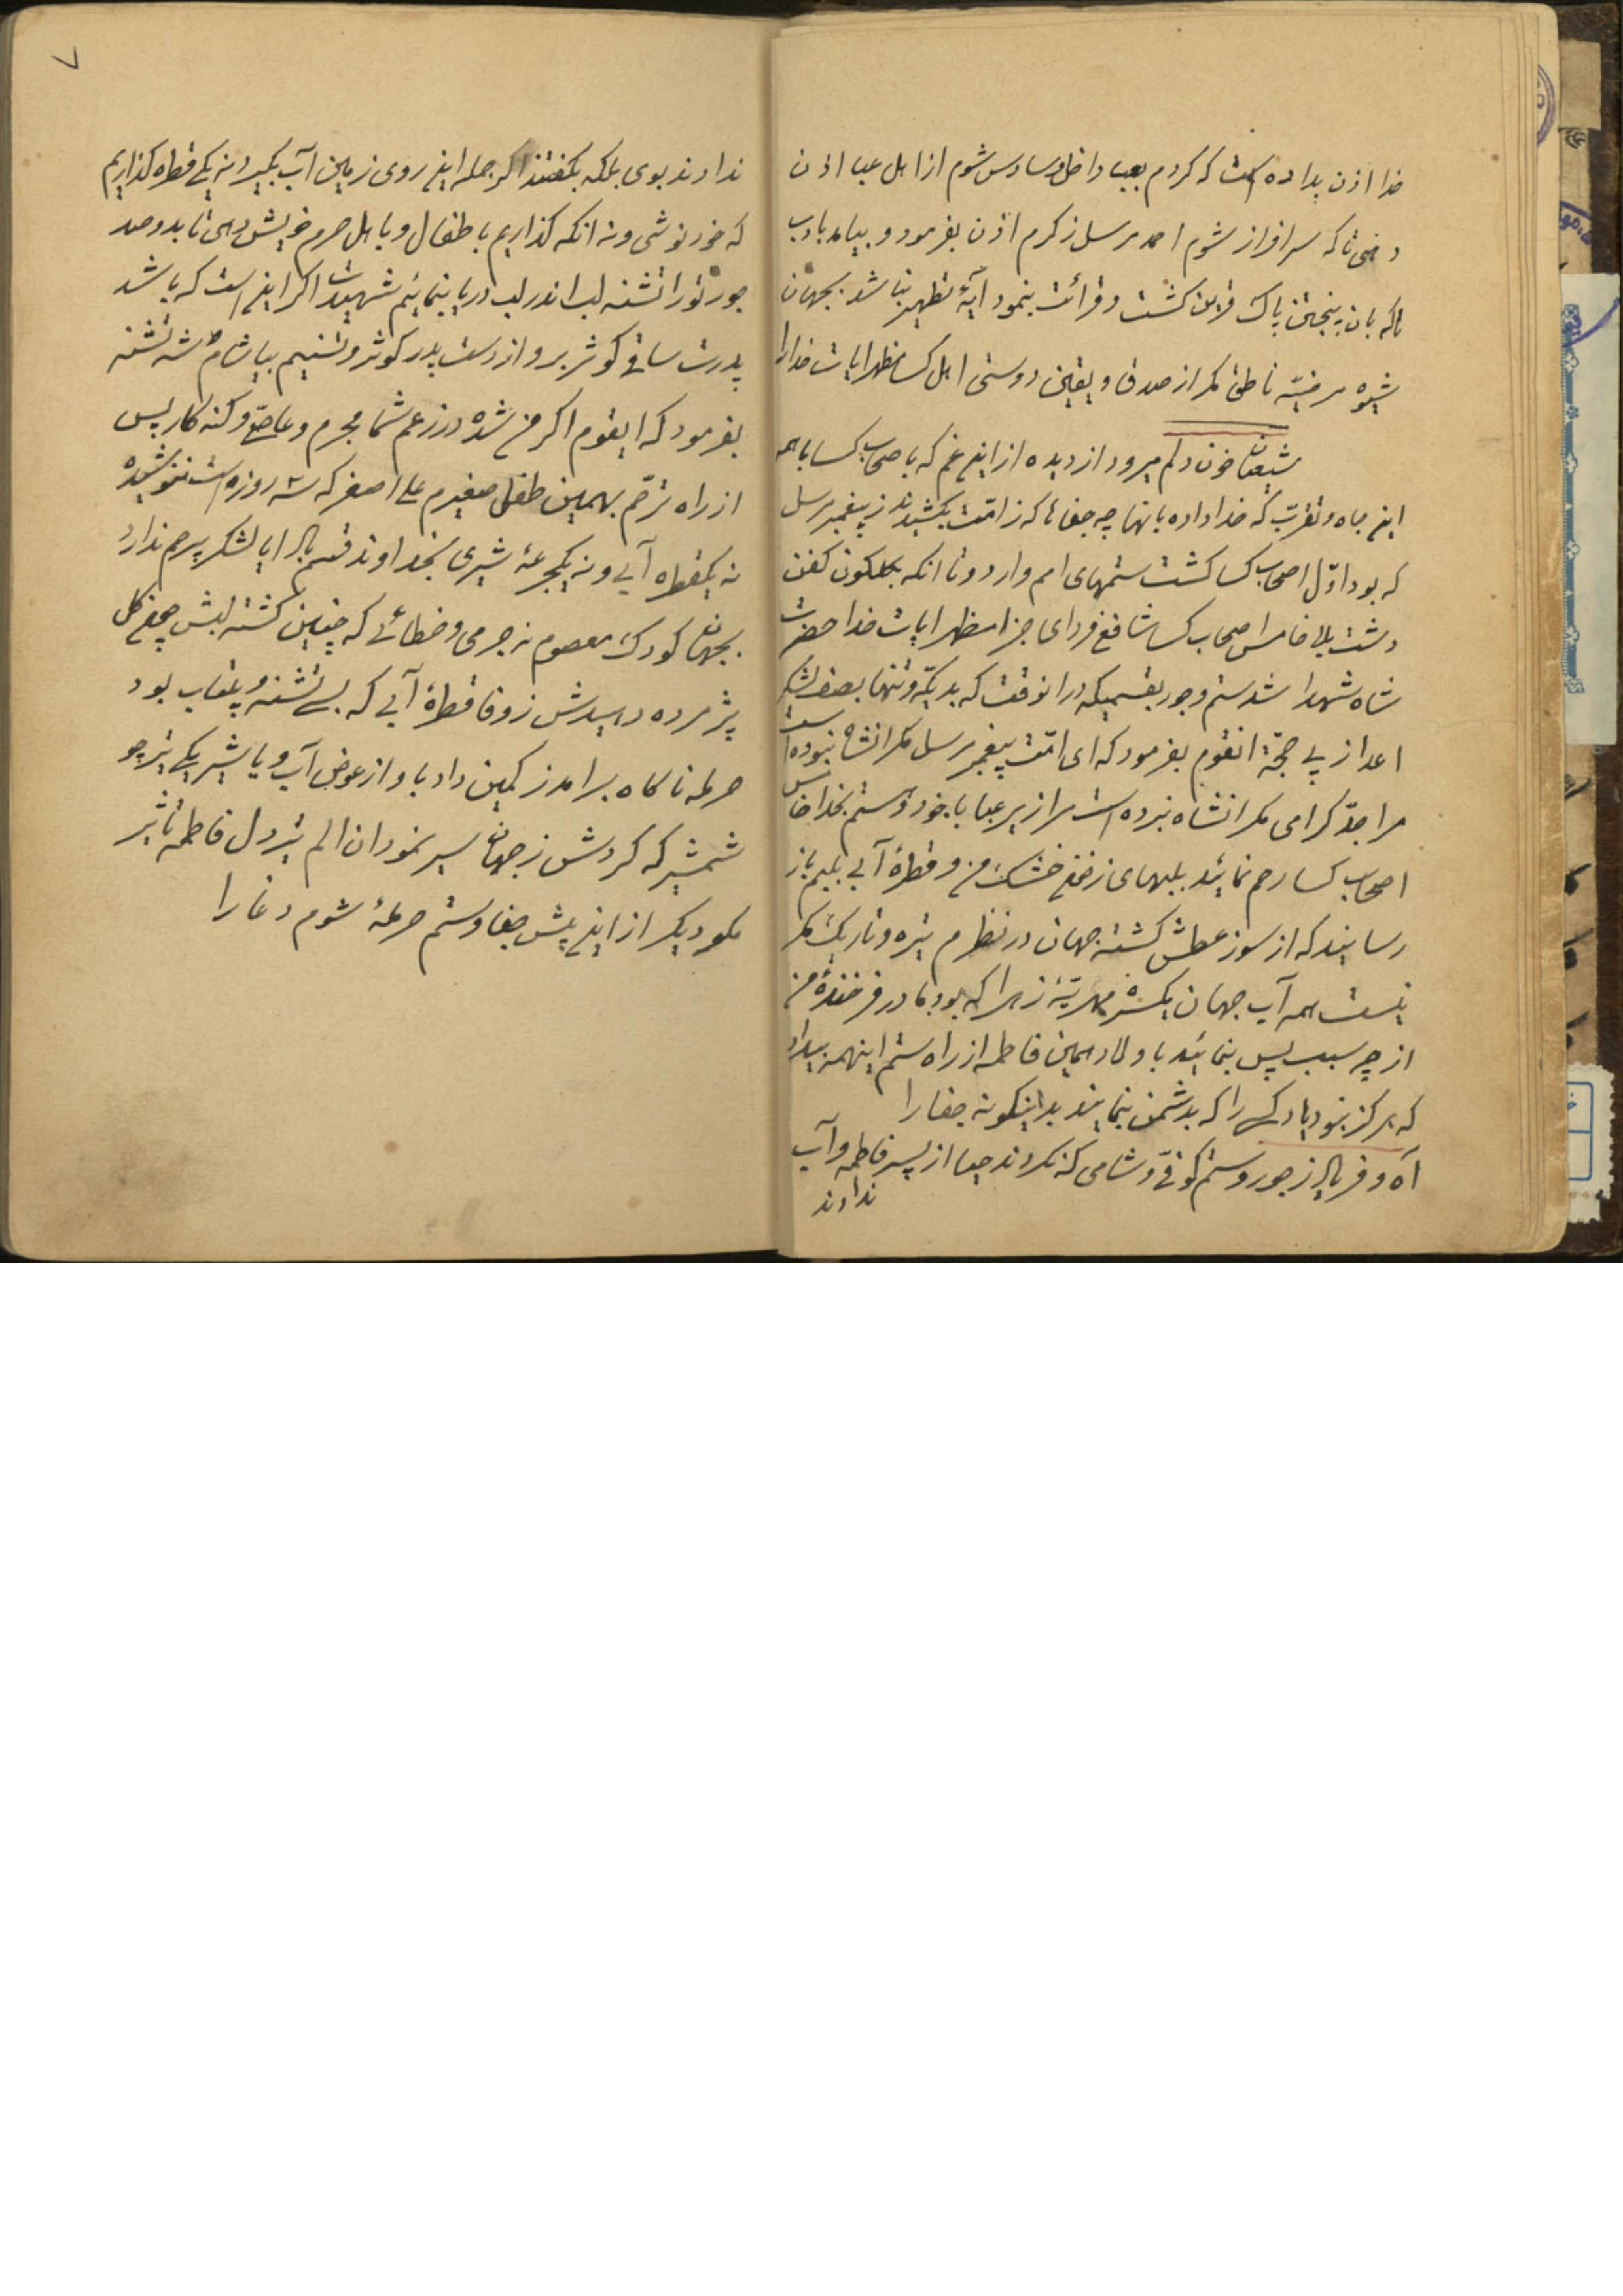 خدا اذن بداده است که کردم بعبا داخل و سادس شوم از اهل عبا اذن
دهی تا که سرافراز شوم احمد مرسل ز کرم اذن بفرمود و بیامد بادب
تا که بان پنجتن پاک قرین کشت و قرائت بنمود آیهٔ تطهیر نباشد بجهان
شیوهٔ مرضیّه ناطق مگر از صدق و یقین دوستی اهل کسا مظهر ایات خدا را
شیعیان خون دلم میرود از دیده از این غم که باصحاب کسا با همه
این جاه و تقرب که خدا داده بانها چه جفاها که ز امّت بکشیدند ز پیغمبر مرسل
که بود اوّل اصحاب کسا کشت ستمهای امم وارد و تا انکه بکلکون کفن
دشت بلا خامس اصحاب کسا شافع فردای جزا مظهر ایات خدا حضرت
شاه شهدا شد ستم و جور بقسمیکه در انوقت که بد یکّه و تنها بصف لشکر
اعدا ز پی حجّة انقوم بفرمود که ای امّت پیغمبر مرسل مکر انشاه نبوده است
مرا جدّ کرامی مکر انشاه نبرده است مرا زیر عبا با خود و هستم بخدا خامس
اصحاب کسا رحم نمائید بلبهای ز غم خشک من و قطرهٔ آبی بلبم باز
رسانید که از سوز عطش کشته جهان در نظرم تیره و تاریک مکر
نیست همه آب جهان یکسره مهریّهٔ زهرا که بود مادر فرخندهٔ من
از چه سبب پس بنمائید باولاد همین فاطمه از راه ستم اینهمه بیداد
که هرکز بنود یاد کسی را که بدشمن بنمایند بداینکونه جفا را
آه و فریاد ز جور و ستم کوفی و شامی که نکردند حیا از پسر فاطمه و آب
ندادند
۷
ندادند بوی بلکه بکفتند اکر جمله این روی زمین آب بکیرد نه یکی قطره کذاریم
که خود نوشی و نه انکه کذاریم باطفال و باهل حرم خویش دهی تا بدو صد
جور تو را تشنه لب اندر لب دریا بنمائیم شهیدت اکر این است که باشد
پدرت ساقی کوثر برو از دست پدر کوثر و تسنیم بیاشام شه تشنه
بفرمود که ایقوم اکر من شده در زعم شما مجرم و عاصی و کنه کار پس
از راه ترحّم بهمین طفل صغیرم علی اصغر که سه روزه است ننوشیده
نه یکقطره آبی و نه یکجرعهٔ شیری بخداوند قسم باد ایا لشکر بیرحم ندارد
بجهان کودک معصوم نه جرمی و خطائی که چنین کشته لبش همچو کل
پژمرده دهیدش ز وفا قطرهٔ آبی که بسی تشنه و بیتاب بود
حرمله ناکاه برامد ز کمین داد باو از عوض آب و یا شیر یکی تیر چو
شمشیر که کردش ز جهان سیر نمود ان الم تیر دل فاطمه تاثیر
مکو دیکر از این بیش جفا و ستم حرملهٔ شوم دغا را